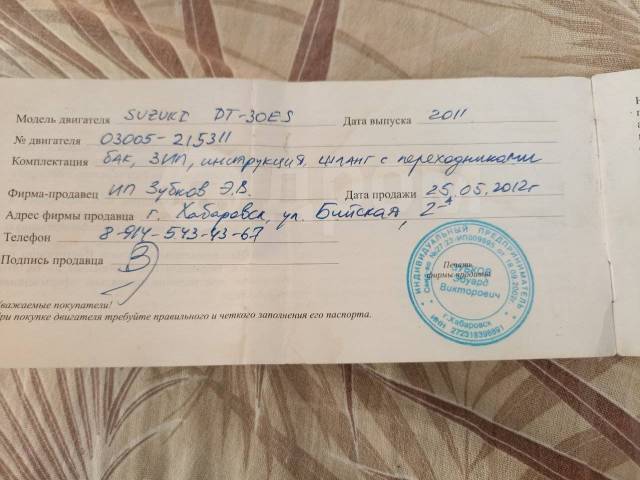 Модель двигателя SUZUKI DT-30ES Дата выпуска 2011
№ двигателя 03005-215311
Комплектация бак, ЗИП, инструкция, шланг с переходниками
Фирма-продавец ИП Зубков Э.В. Дата продажи 25.05.2012г
Адрес фирмы продавца г. Хабаровск, ул. Бийская, 2-А
Телефон 8-914-543-43-67
Подпись продавца
Печать
фирмы продавца
ИНДИВИДУАЛЬНЫЙ ПРЕДПРИНИМАТЕЛЬ
ЗУБКОВ
Эдуард
Викторович
г.Хабаровск
ИНН
Уважаемые покупатели!
При покупке двигателя требуйте правильного и четкого заполнения его паспорта.